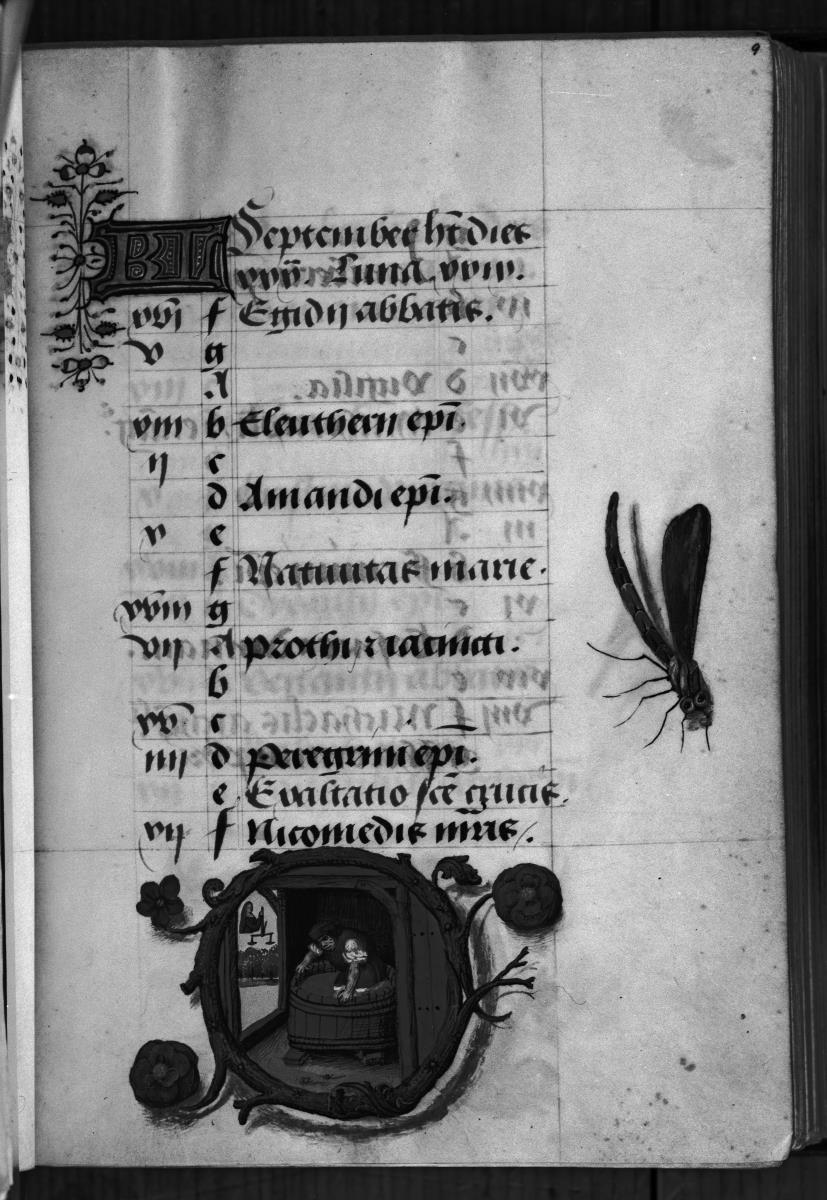 9
KL September ht dies
xxx. Luna xxix.
xvi f Egidij abbatis.
v g
A
xiii b Eleutherij epi.
ij c
d Amandi epi.
x e
f Natiuitas marie.
xviii g
vij A Prothi z iacincti.
b
xv c
iiij d Peregrini epi.
e Exaltatio sce crucis.
xij f Nicomedis mris.